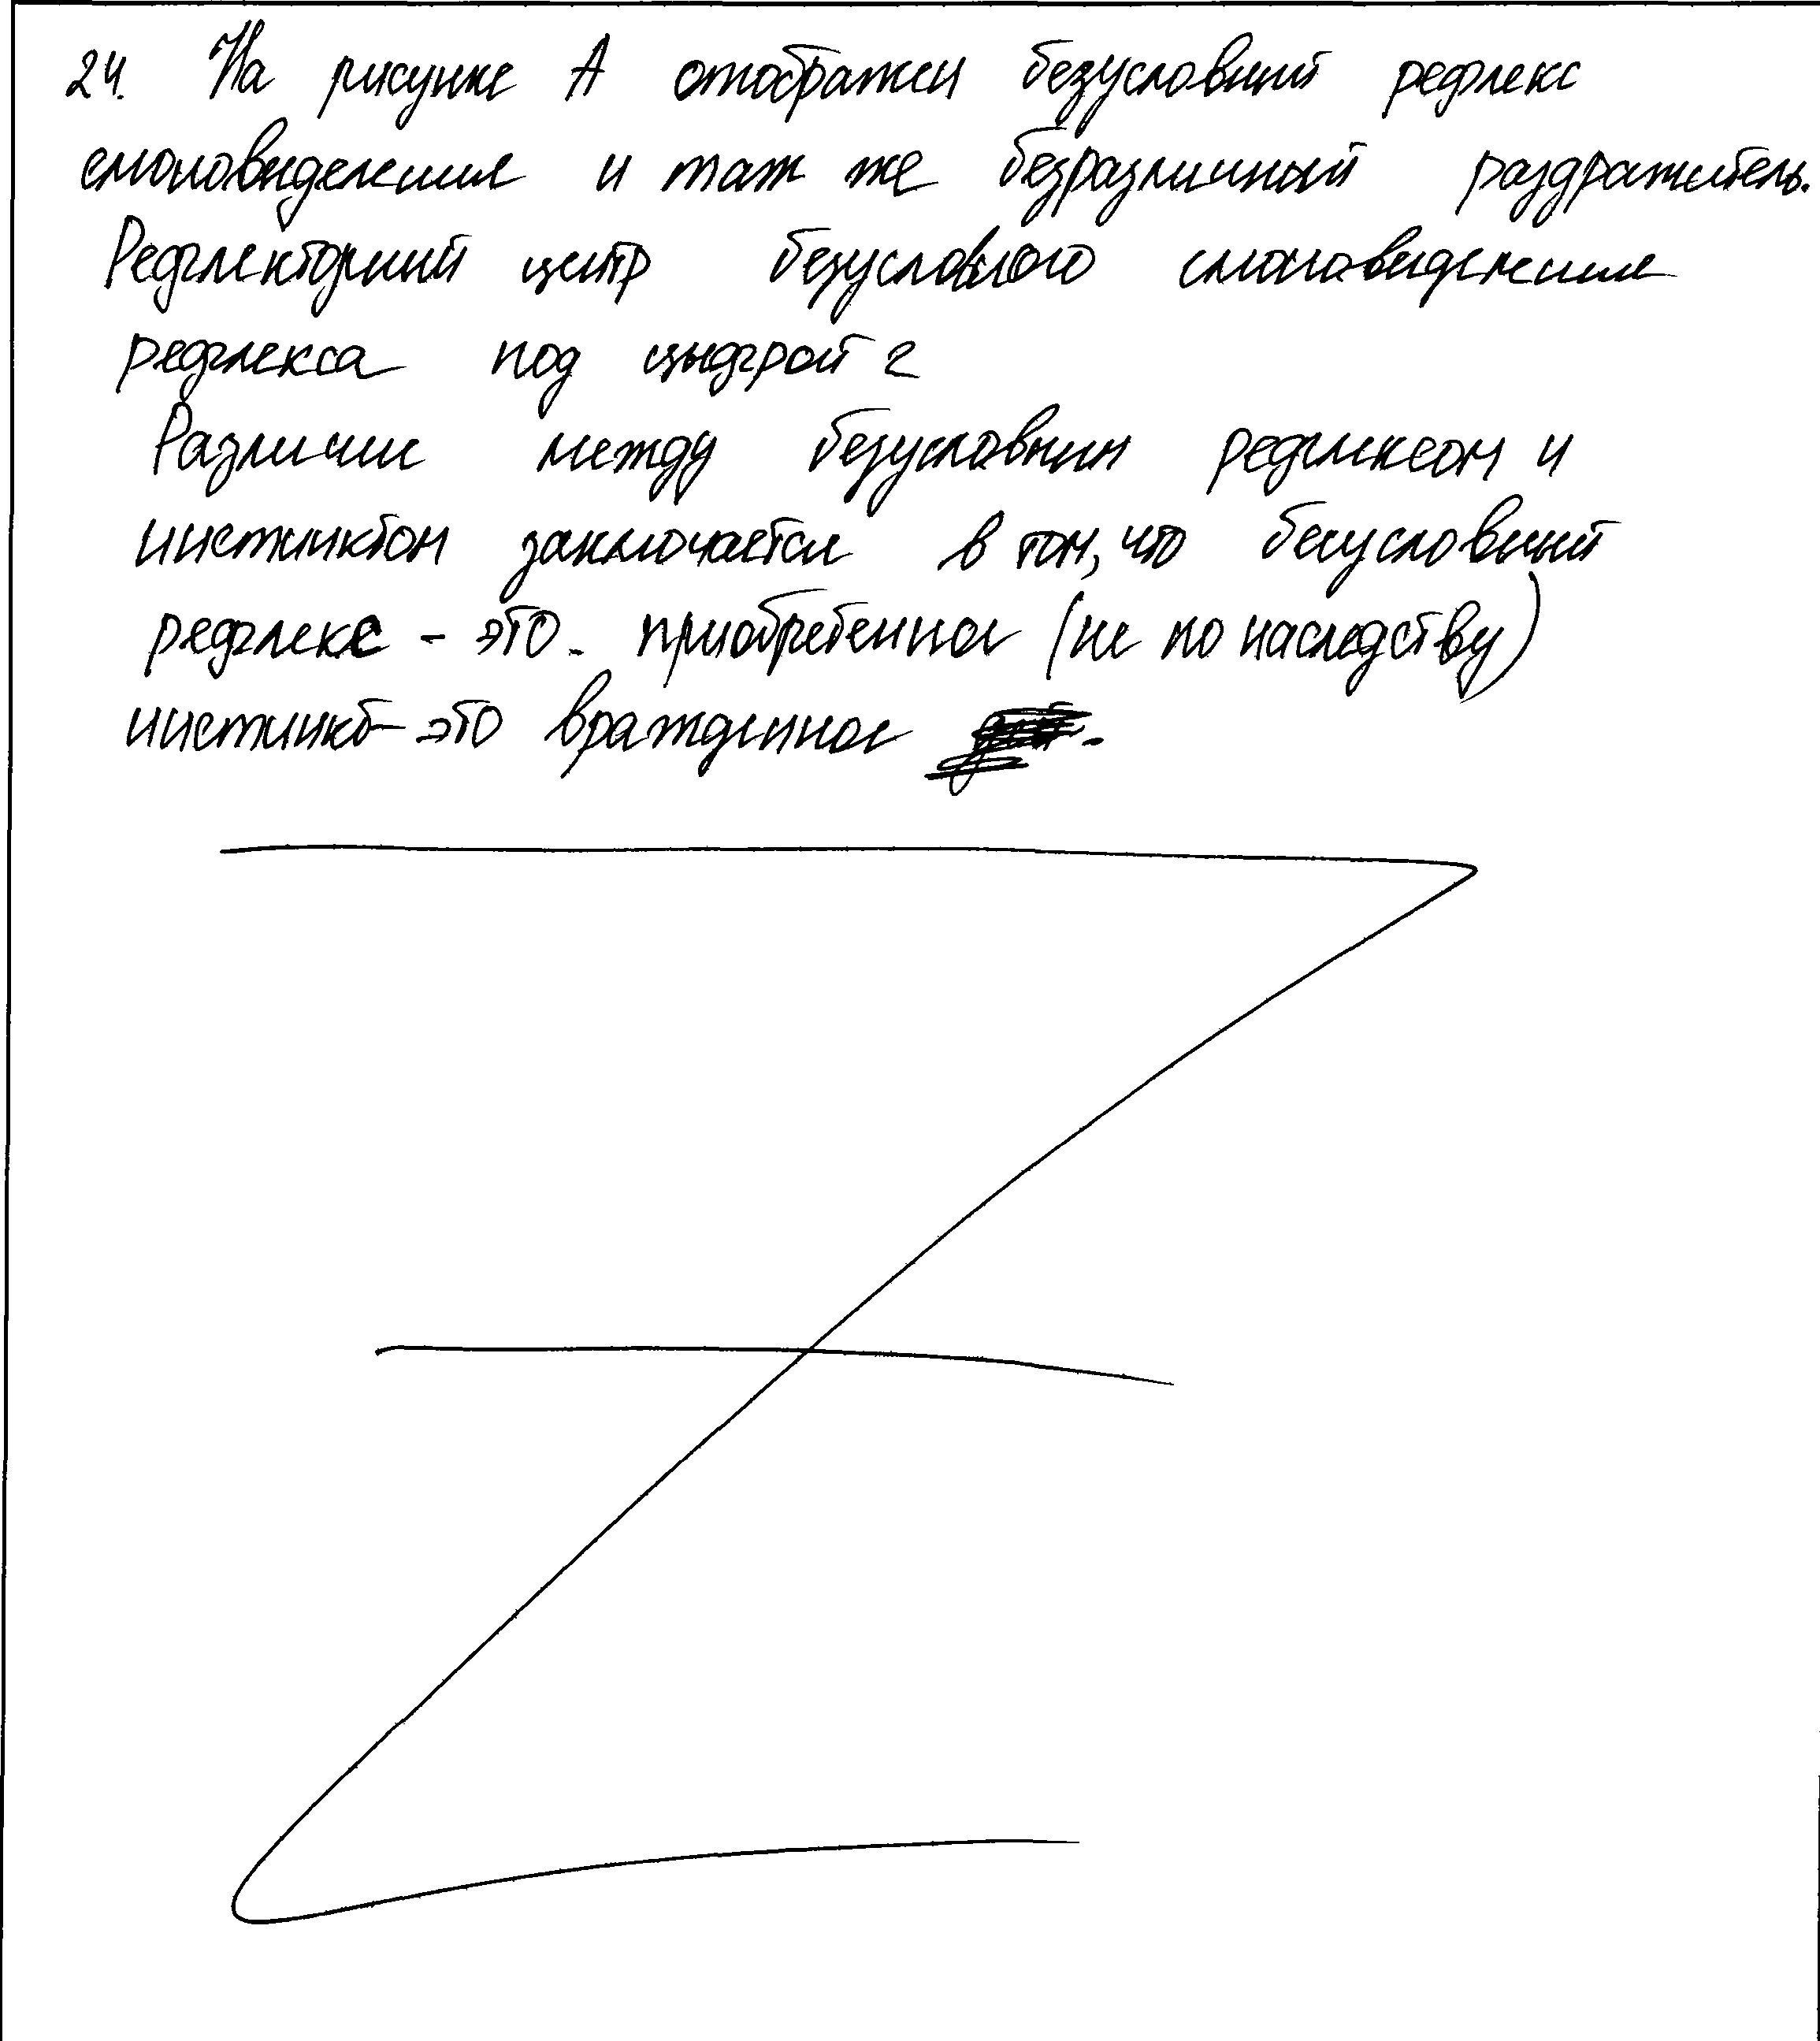 24. На рисунке А отображен безусловный рефлекс
слюновыделения и так же безразличный раздражитель.
Рефлекторный центр безусловного слюновыделения
рефлекса под цыфрой 2
Различие между безусловным рефлексом и
инстинктом заключается в том, что безусловный
рефлекс - это - приобретенное (не по наследству)
инстинкт - это вражденное